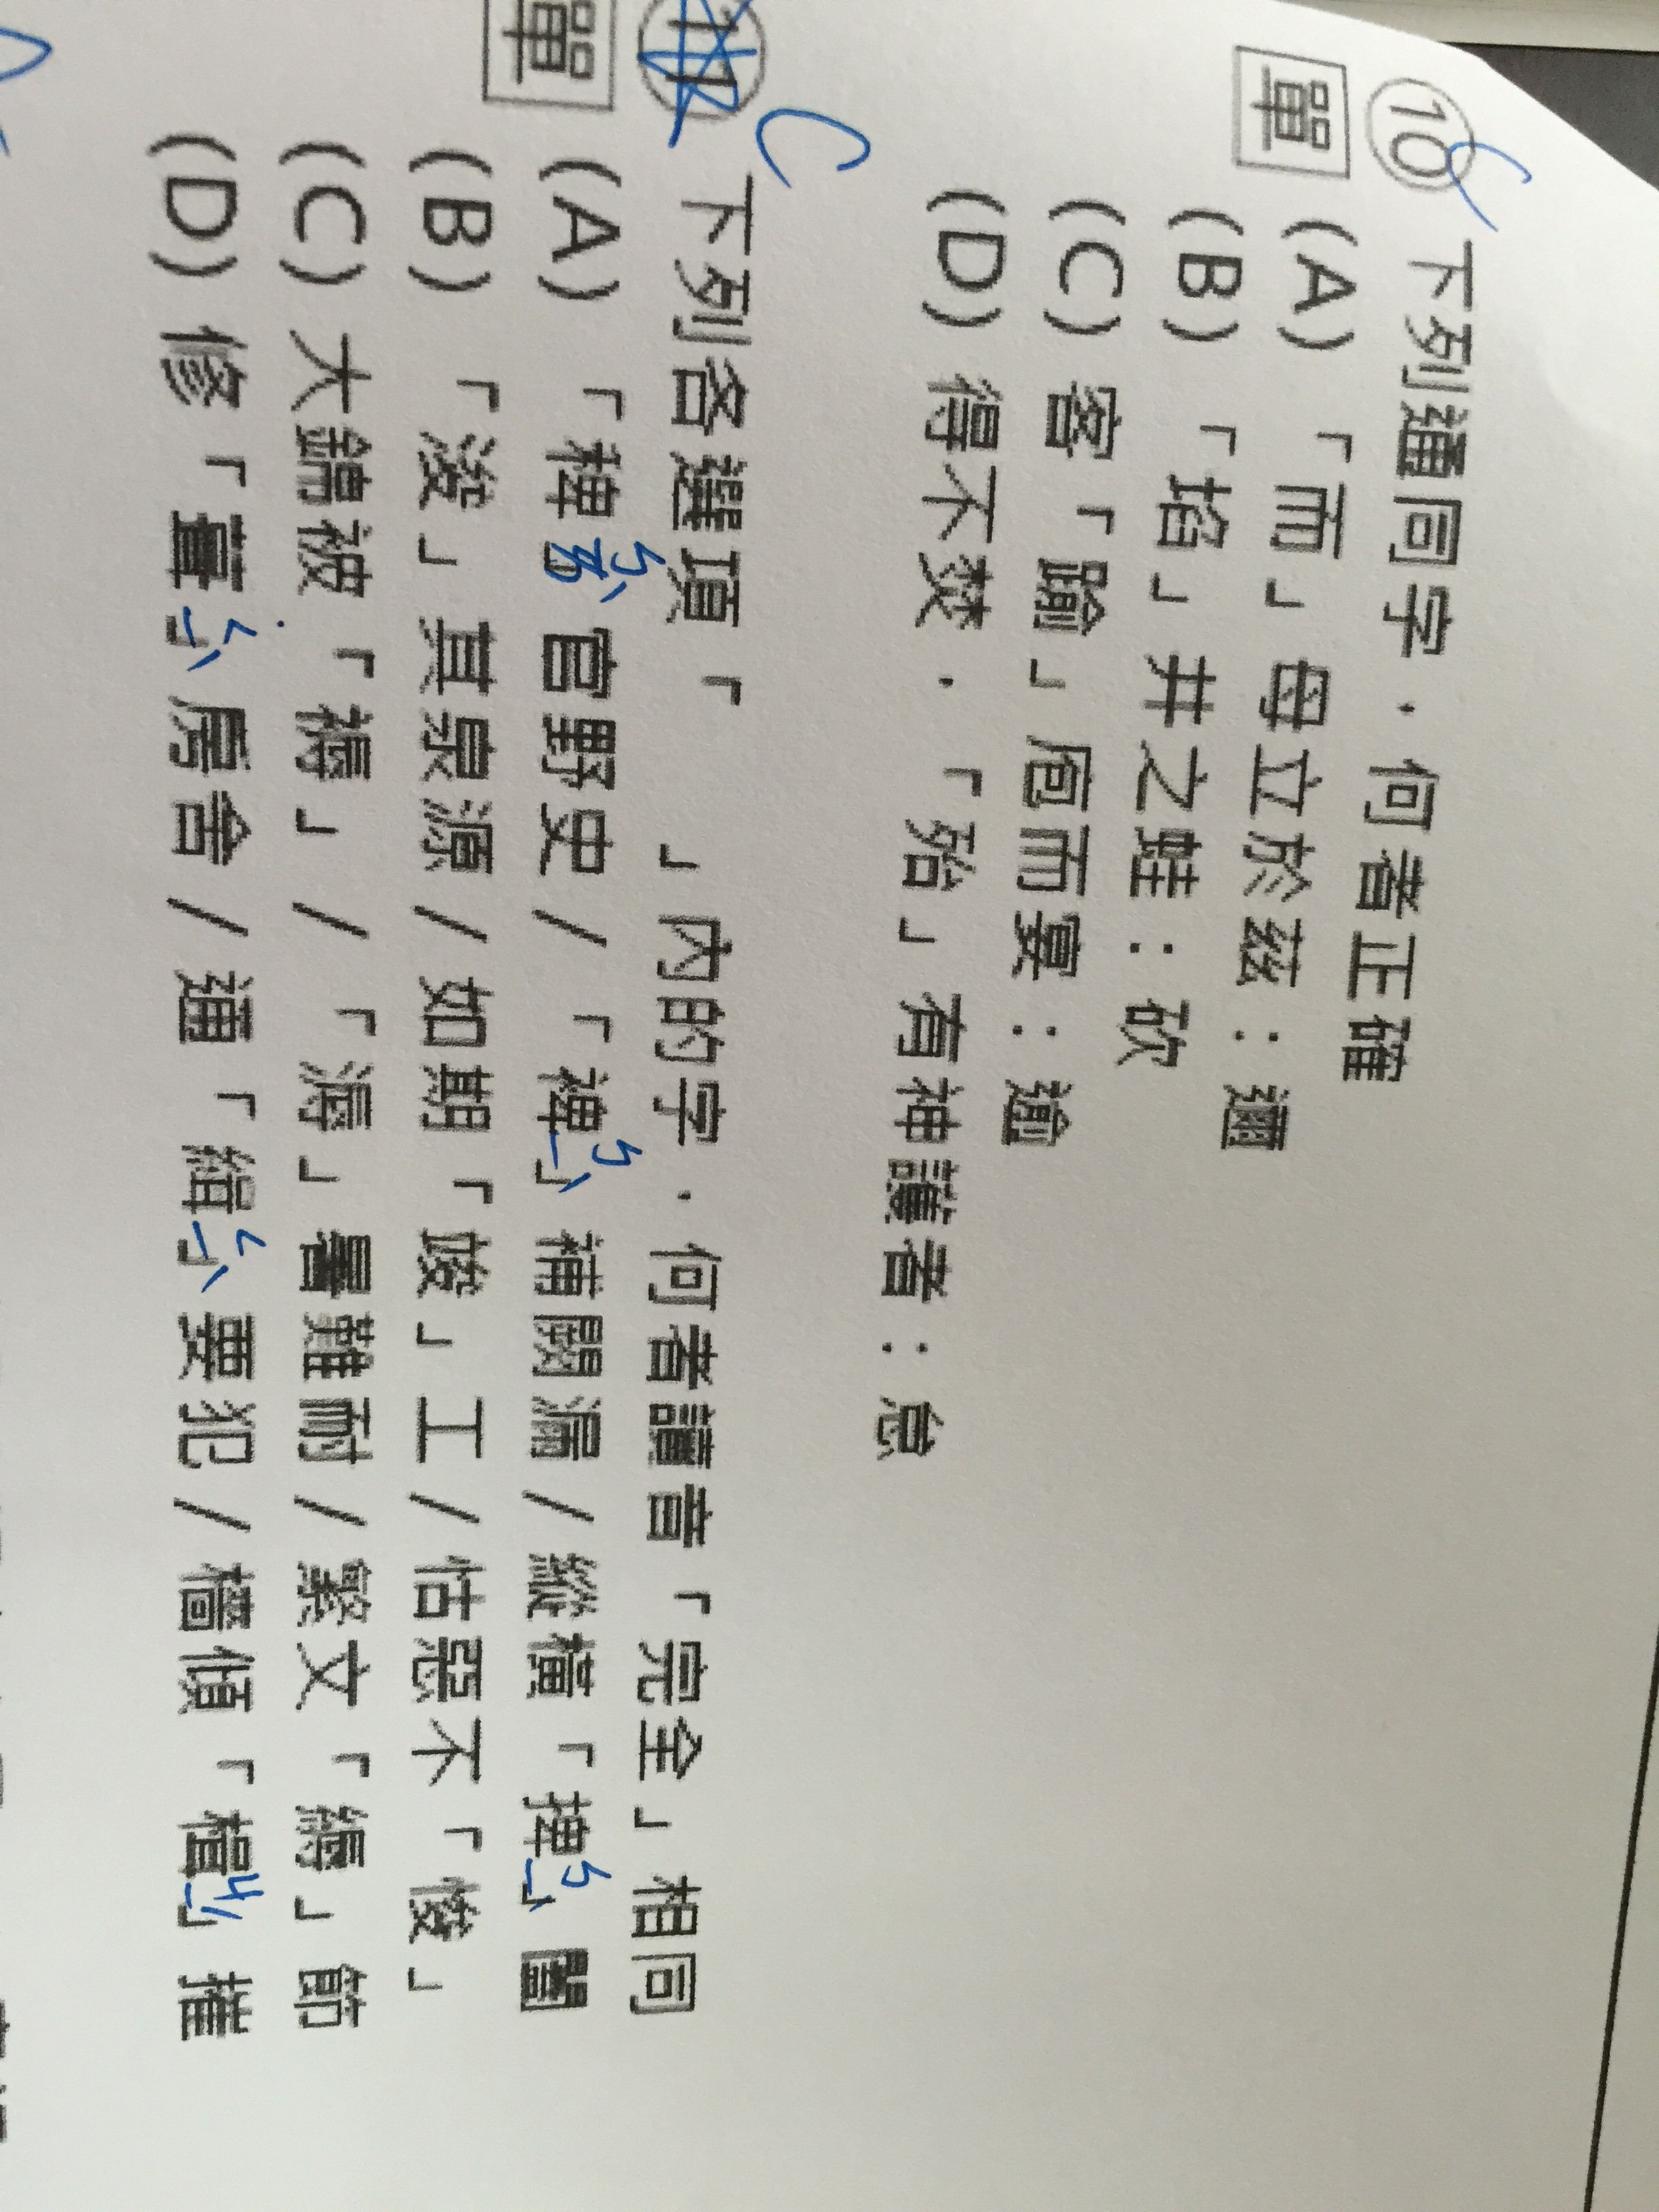 ⑩ 下列通同字，何者正確
單 (A)「而」母立於茲：邇
(B)「埳」井之蛙：砍
(C) 客「踰」庖而宴：逾
(D) 得不焚，「殆」有神護者：怠
C
⑪ 下列各選項「　」內的字，何者讀音「完全」相同
單 (A)「稗」官野史/「裨」補闕漏/縱橫「捭」闔
(B)「浚」其泉源/如期「竣」工/怙惡不「悛」
(C) 大錦被「褥」/「溽」暑難耐/繁文「縟」節
(D) 修「葺」房舍/通「緝」要犯/檣傾「楫」摧